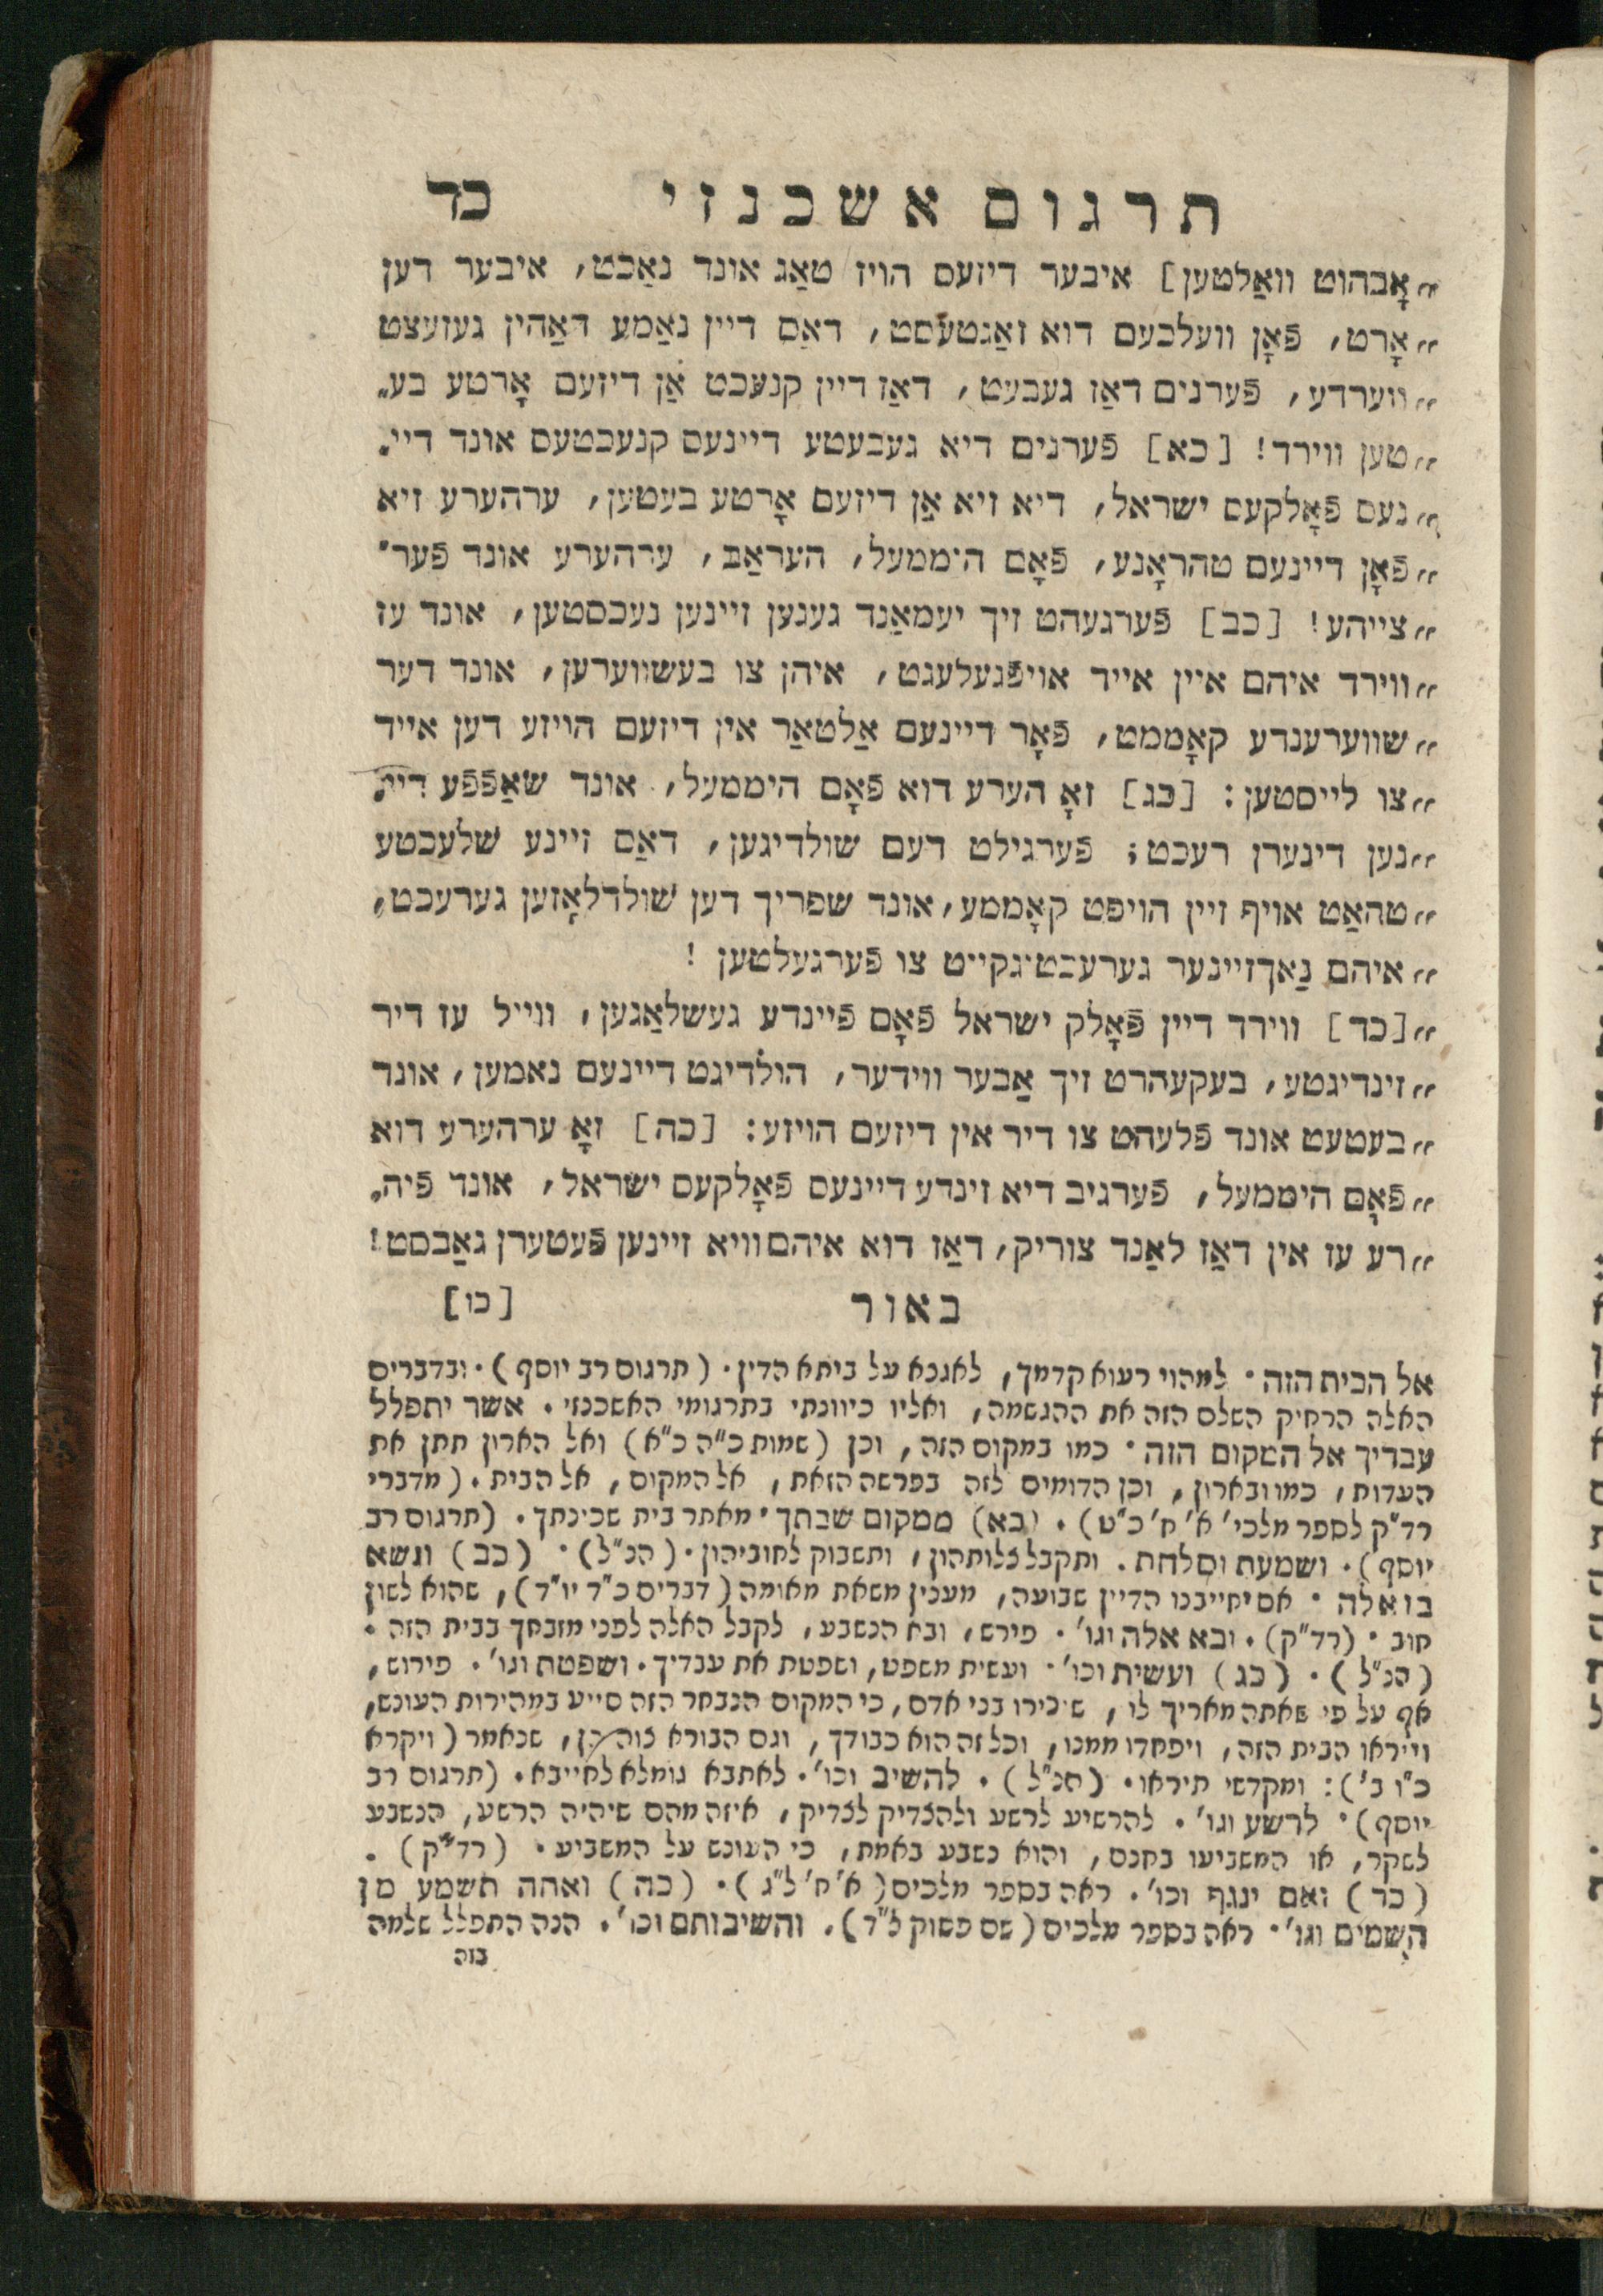 תרגום אשכנזי כד
„אָבהוט וואַלטען] איבער דיזעס הויז טאַג אונד נאַכט, איבער דען
„אָרט, פֿאָן וועלכעם דוא זאַגטעסט, דאַס דיין נאַמע דאַהין געזעצט
„ווערדע, פֿערנים דאַז געבעט, דאַז דיין קנעכט אַן דיזעם אָרטע בע„
„טען ווירד! [כא] פֿערנים דיא געבעטע דיינעס קנעכטעס אונד דיי„
„נעס פֿאָלקעס ישראל, דיא זיא אַן דיזעם אָרטע בעטען, ערהערע זיא
„פֿאָן דיינעם טהראָנע, פֿאָם היממעל, העראַב, ערהערע אונד פֿער„
„צייהע! [כב] פֿערגעהט זיך יעמאַנד געגען זיינען נעכסטען, אונד עז
„ווירד איהם איין אייד אויפֿגעלעגט, איהן צו בעשווערען, אונד דער
„שווערענדע קאָממט, פֿאָר דיינעם אַלטאַר אין דיזעם הויזע דען אייד
„צו לייסטען: [כג] זאָ הערע דוא פֿאָם היממעל, אונד שאַפֿפֿע דיי„
„נען דינערן רעכט; פֿערגילט דעם שולדיגען, דאַס זיינע שלעכטע
„טהאַט אויף זיין הויפט קאָממע, אונד שפריך דען שולדלאָזען גערעכט,
„איהם נאַך זיינער גערעכטיגקייט צו פֿערגעלטען!
„[כד] ווירד דיין פֿאָלק ישראל פֿאָם פֿיינדע געשלאַגען, ווייל עז דיר
„זינדיגטע, בעקעהרט זיך אַבער ווידער, הולדיגט דיינעם נאמען, אונד
„בעטעט אונד פֿלעהט צו דיר אין דיזעם הויזע: [כה] זאָ ערהערע דוא
„פֿאָם היממעל, פֿערגיב דיא זינדע דיינעס פֿאָלקעס ישראל, אונד פֿיה„
„רע עז אין דאַז לאַנד צוריק, דאַז דוא איהם וויא זיינען פֿעטערן גאַבסט!
באור [כו]
אל הבית הזה. למהוי רעוא קדמך, לאגנא על ביתא הדין. (תרגום רב יוסף). ובדברים
האלה הרחיק השלם הזה את ההגשמה, ואליו כיוונתי בתרגומי האשכנזי. אשר יתפלל
עבדיך אל המקום הזה. כמו במקום הזה, וכן (שמות כ"ה כ"א) ואל הארון תתן את
העדות, כמו ובארון, וכן הדומים לזה בפרשה הזאת, אל המקום, אל הבית. (מדברי
רד"ק לספר מלכי' א' ח' כ"ט). (כא) ממקום שבתך. מאתר בית שכינתך. (תרגום רב
יוסף). ושמעת וסלחת. ותקבל צלותהון, ותשבוק לחוביהון. (הנ"ל). (כב) ונשא
בו אלה. אם יחייבנו הדיין שבועה, מענין משאת מאומה (דברים כ"ד יו"ד), שהוא לשון
חוב. (רד"ק). ובא אלה וגו'. פירש, ובא הנשבע, לקבל האלה לפני מזבחך בבית הזה.
(הנ"ל). (כג) ועשית וכו'. ועשית משפט, ושפטת את עבדיך. ושפטת וגו'. פירוש,
אף על פי שאתה מאריך לו, שיכירו בני אדם, כי המקום הנבחר הזה סייע במהירות העונש,
וייראו הבית הזה, ויפחדו ממנו, וכל זה הוא כבודך, וגם הבורא צוה כן, שנאמר (ויקרא
כ"ו ב'): ומקדשי תיראו. (הנ"ל). להשיב וכו'. לאתבא גומלא לחייבא. (תרגום רב
יוסף). לרשע וגו'. להרשיע לרשע ולהצדיק לצדיק, איזה מהם שיהיה הרשע, הנשבע
לשקר, או המשביעו בחנם, והוא נשבע באמת, כי העונש על המשביע. (רד"ק).
(כד) ואם ינגף וכו'. ראה בספר מלכים (א' ח' ל"ג). (כה) ואתה תשמע מן
השמים וגו'. ראה בספר מלכים (שם פסוק ל"ד). והשיבותם וכו'. הנה התפלל שלמה
בזה